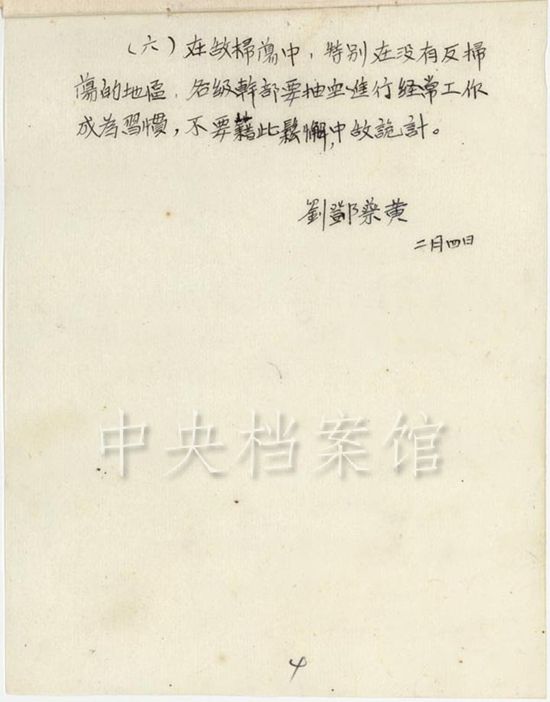 （六）在敌掃蕩中，特别在没有反掃
蕩的地區，各級幹部要抽空進行経常工作
成為習慣，不要藉此鬆懈，中敌詭計。
劉鄧蔡黄
二月四日
中央档案馆
4